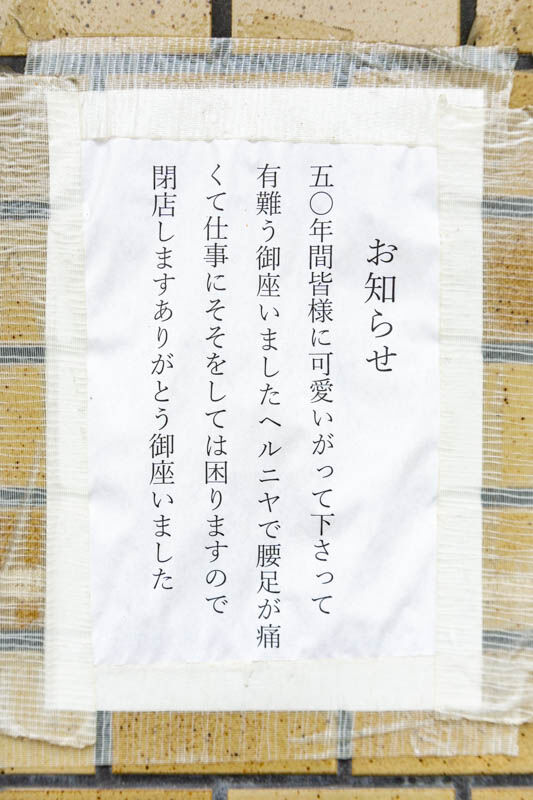 お知らせ
五〇年間皆様に可愛いがって下さって
有難う御座いましたヘルニヤで腰足が痛
くて仕事にそそをしては困りますので
閉店しますありがとう御座いました